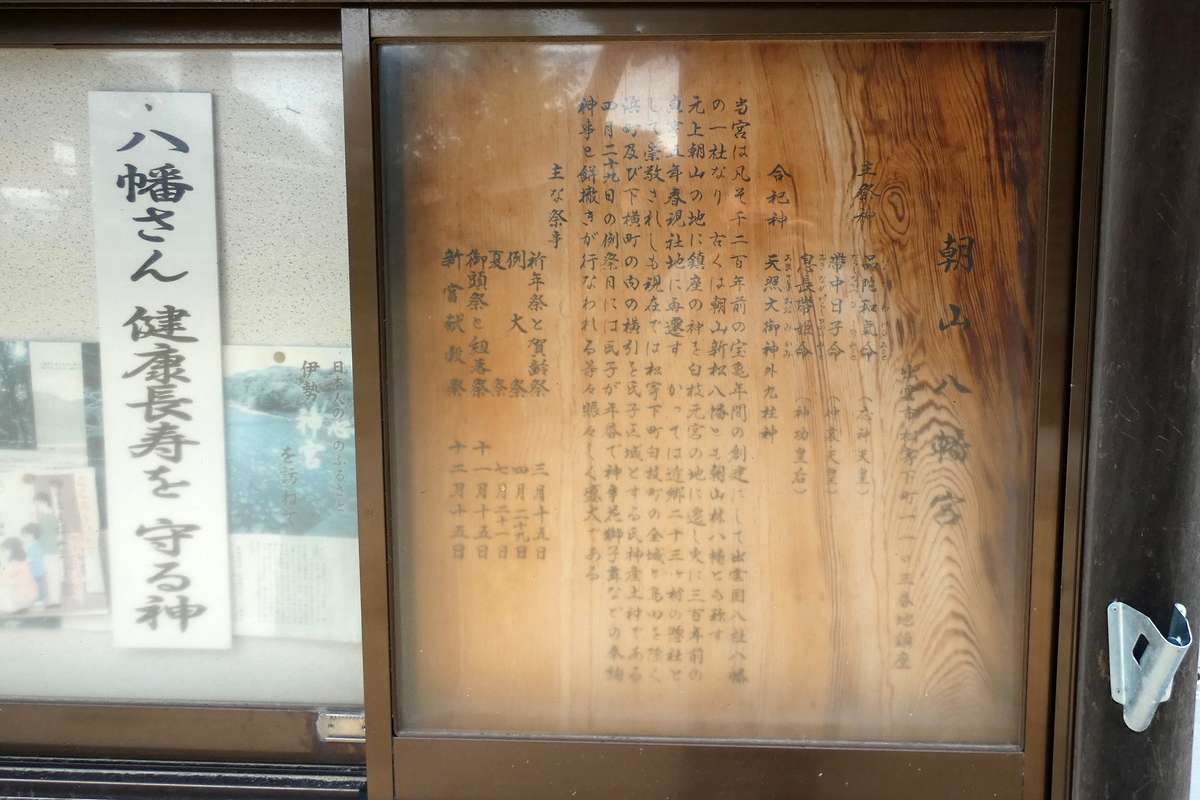 朝山八幡宮
出雲市松寄下町一一一三番地鎮座
主祭神
品陀和氣命（応神天皇）
帯中日子命（仲哀天皇）
息長帯姫命（神功皇后）
合祀神
天照大御神外九柱神
当宮は凡そ千二百年前の宝亀年間の創建にして出雲国八社八幡
の一社なり 古くは朝山新松八幡とも朝山林八幡とも称す
元上朝山の地に鎮座の神を白枝元宮の地に遷し更に三百年前の
五年春現社地に再遷す かつては近郷二十三ヶ村の惣社と
して崇敬されしも現在では松寄下町白枝町の全域と
浜町及び下横町の内の横引を氏子区域とする氏神産土神である
四月二十九日の例祭日には氏子が年番で神事花獅子舞などの奉納
神事と餅撒きが行なわれる等々賑々しく盛大である
主な祭事
祈年祭と賀齢祭 三月十五日
例大祭 四月二十九日
夏祭 七月二十一日
御頭祭と 十一月十五日
新嘗献穀祭 十二月十五日
八幡さん 健康長寿を 守る神
日本人の心のふるさと
伊勢神宮
を訪ねて